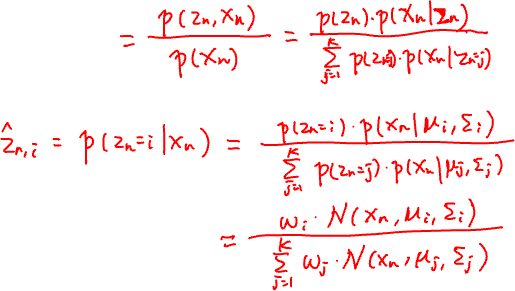 = p(zn, xn) / p(xn) = p(zn) · p(xn | zn) / Σ_{j=1}^{K} p(zn=j) · p(xn | zn=j)
ẑn,i = p(zn=i | xn) = p(zn=i) · p(xn | μi, Σi) / Σ_{j=1}^{K} p(zn=j) · p(xn | μj, Σj)
= ωi · N(xn, μi, Σi) / Σ_{j=1}^{K} ωj · N(xn, μj, Σj)